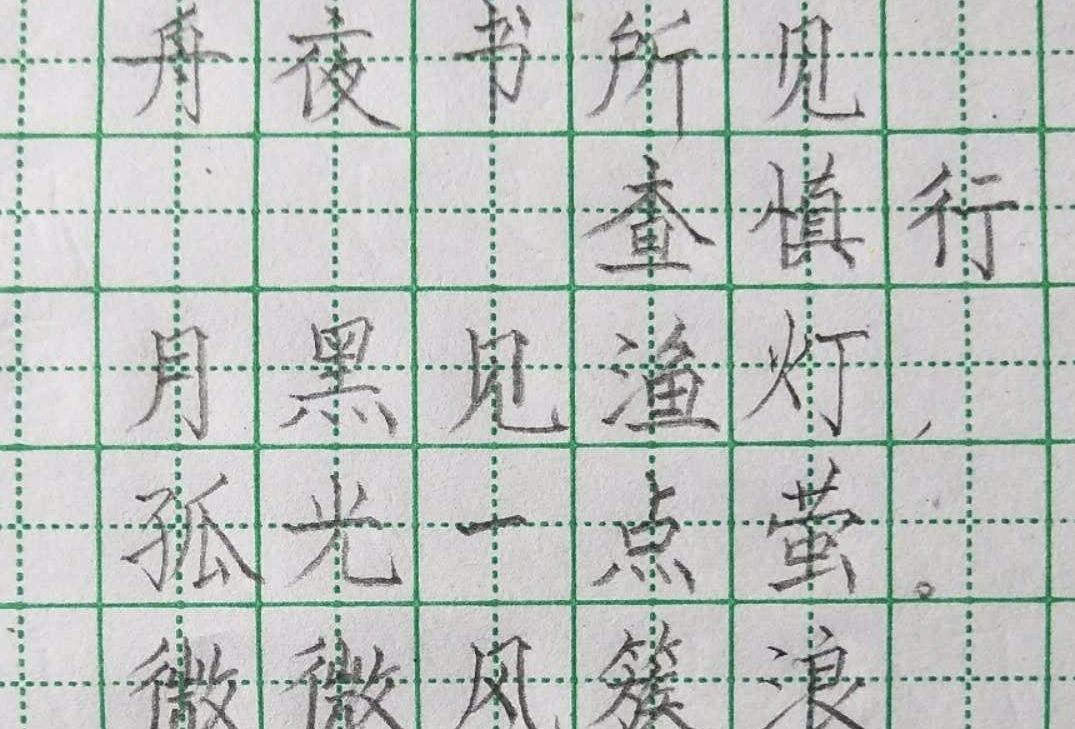 舟夜书所见
查慎行
月黑见渔灯,
孤光一点萤。
微微风簇浪